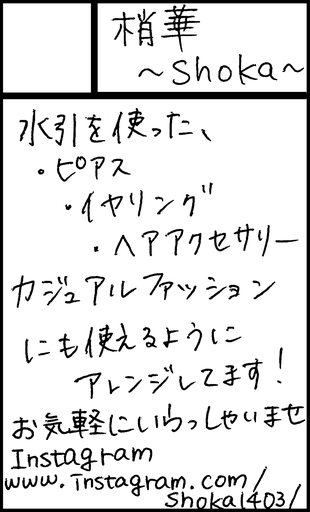 梢華
～Shoka～
水引を使った、
・ピアス
・イヤリング
・ヘアアクセサリー
カジュアルファッション
にも使えるように
アレンジしてます！
お気軽にいらっしゃいませ
Instagram
www.instagram.com/
shoka1403/